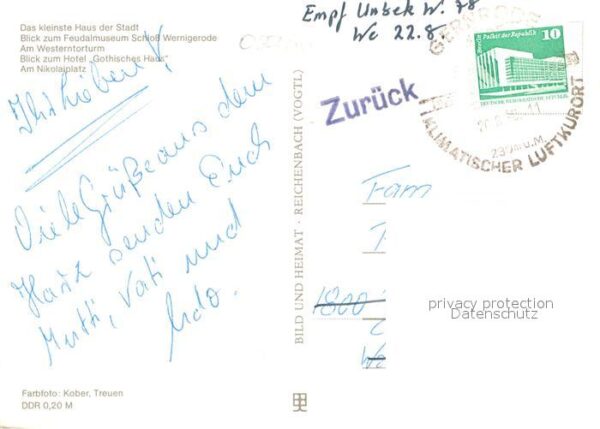 Das kleinste Haus der Stadt
Blick zum Feudalmuseum Schloß Wernigerode
Am Westerntorturm
Blick zum Hotel „Gothisches Haus"
Am Nikolaiplatz
Ihr Lieben!
Viele Grüße aus dem
Harz senden Euch
Mutti, Vati und
Udo.
Farbfoto: Kober, Treuen
DDR 0,20 M
BILD UND HEIMAT · REICHENBACH (VOGTL)
Empf Unbek W. 78
We 22.8
Zurück
10
KLIMATISCHER LUFTKURORT
Fam
1800
We
privacy protection
Datenschutz